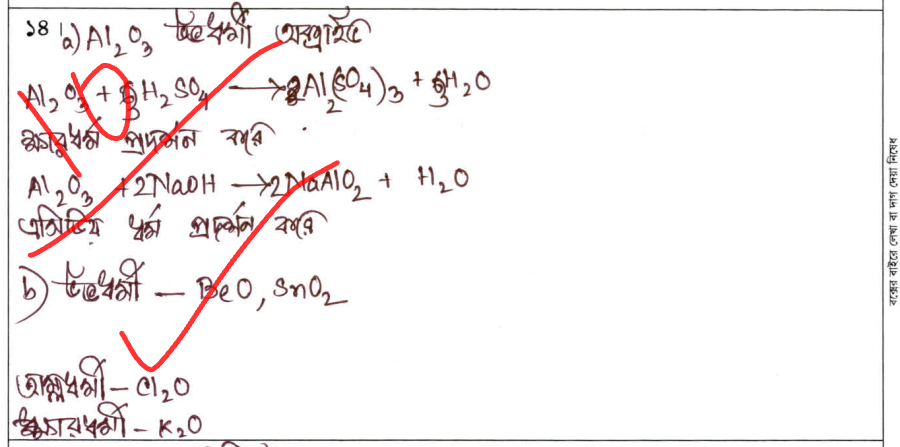 ১৪। a) Al₂O₃ উভধর্মী অক্সাইড
Al₂O₃ + 3H₂SO₄ → Al₂(SO₄)₃ + 3H₂O
ক্ষারধর্ম প্রদর্শন করে
Al₂O₃ + 2NaOH → 2NaAlO₂ + H₂O
এসিডিয় ধর্ম প্রদর্শন করে
b) উভধর্মী — BeO, SnO₂
অম্লধর্মী – Cl₂O
ক্ষারধর্মী – K₂O
বক্সের বাইরে লেখা বা দাগ দেয়া নিষেধ